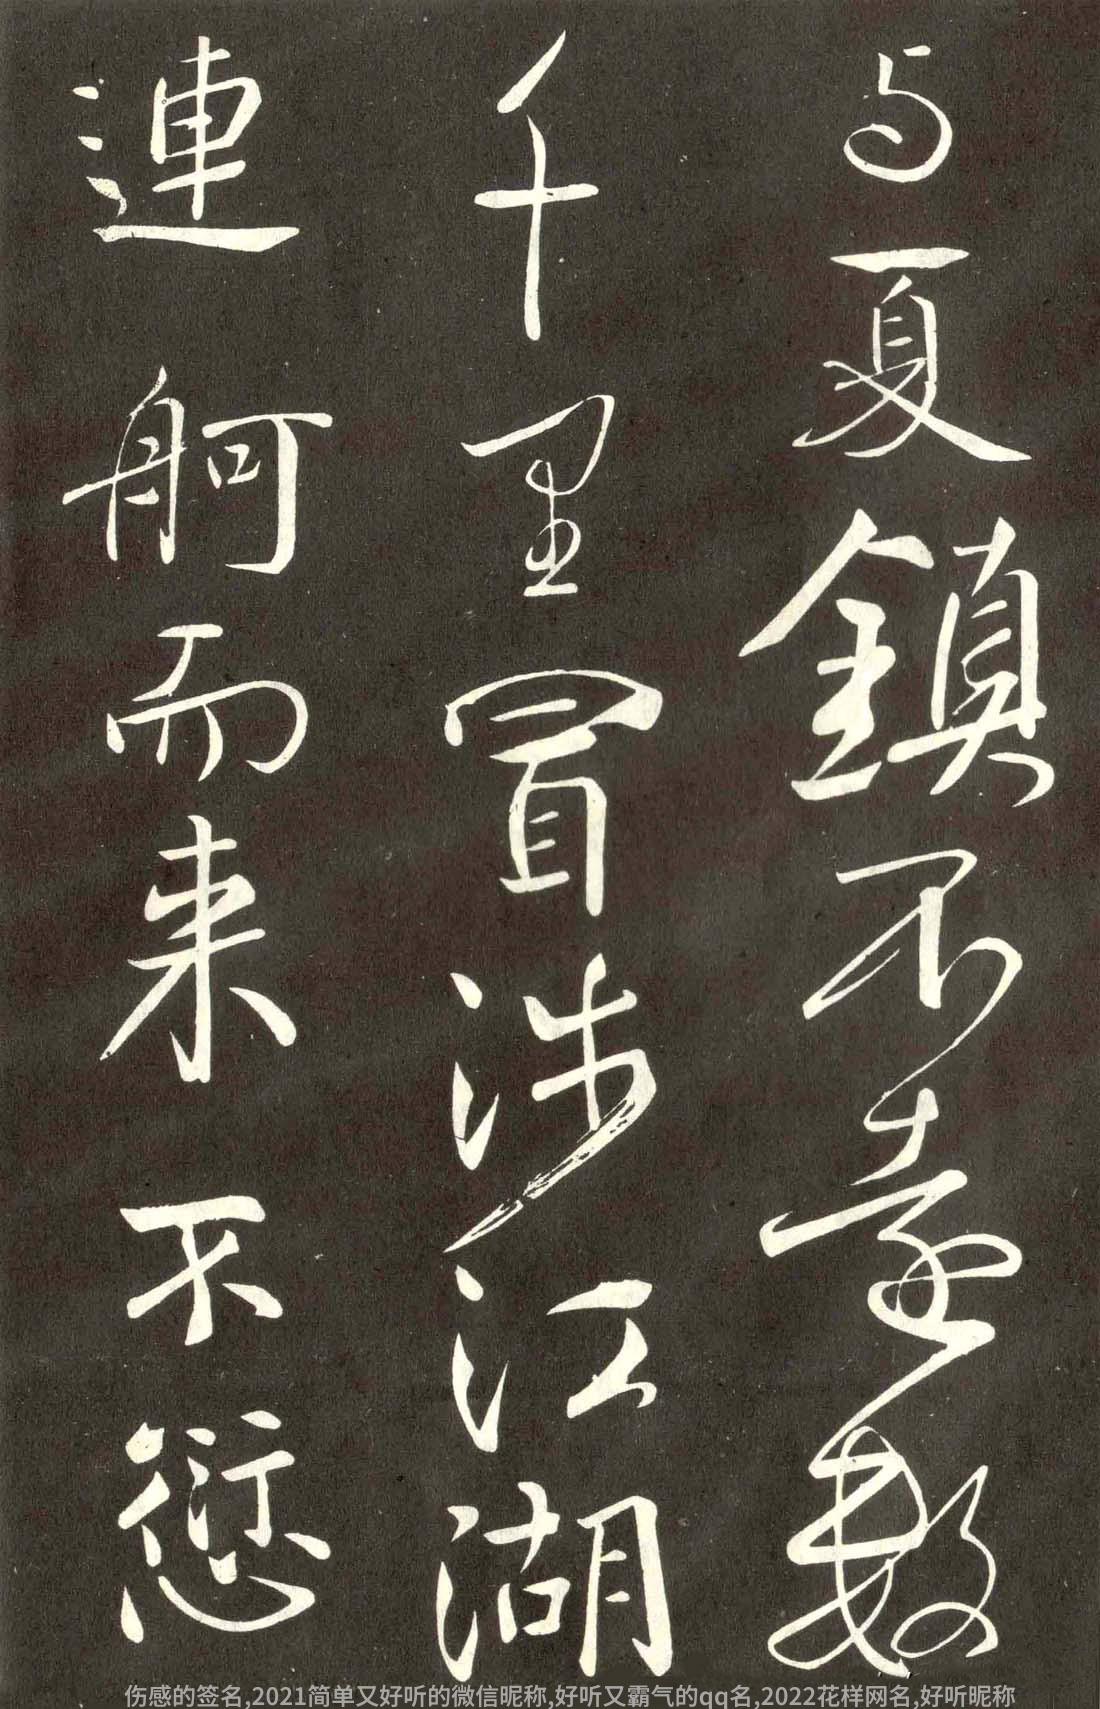 与夏鎮不遠數
千里冒涉江湖
連舸而来不愆
伤感的签名,2021简单又好听的微信昵称,好听又霸气的qq名,2022花样网名,好听昵称